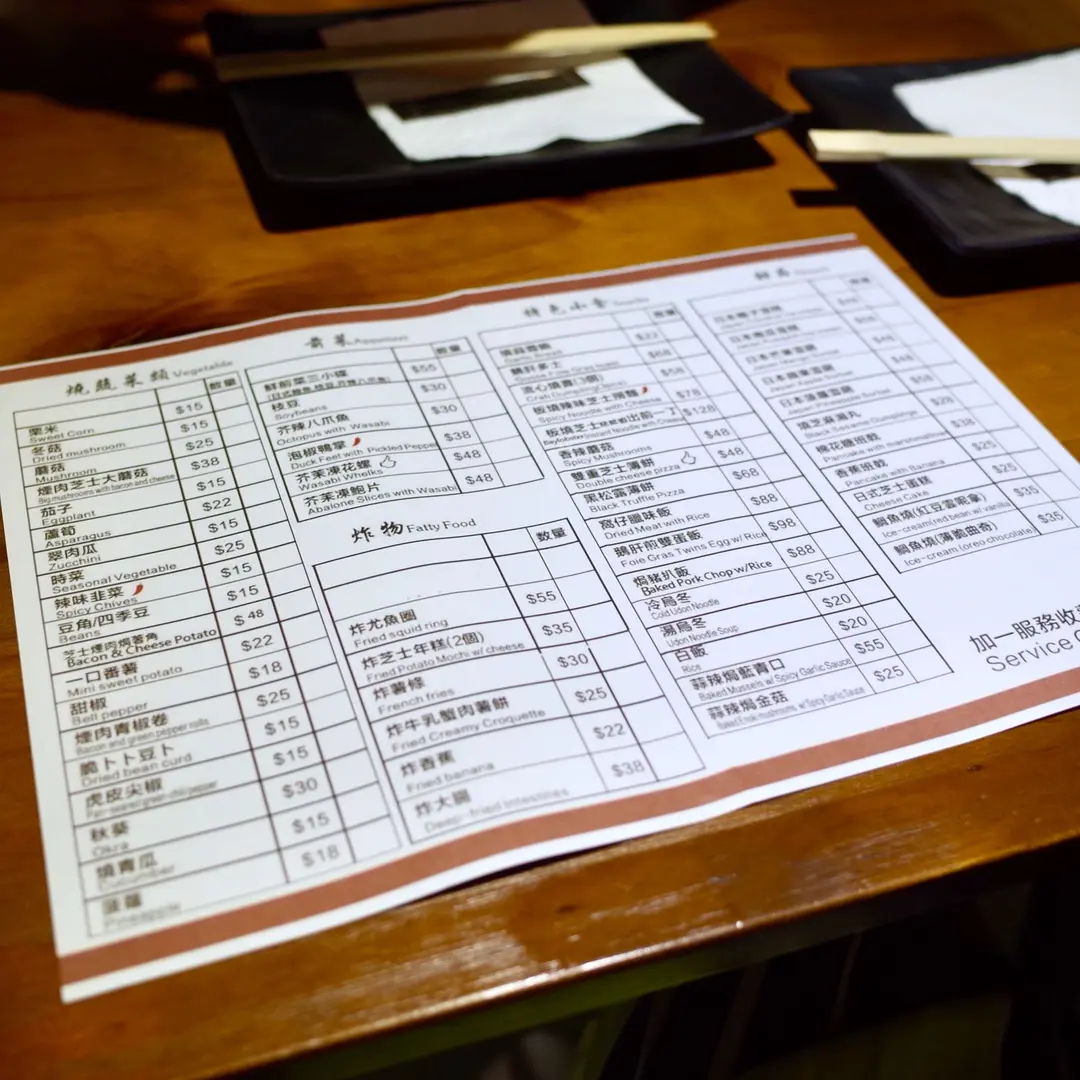 燒蔬菜類 Vegetable
數量
粟米 $15
Sweet Corn
冬菇 $15
Dried mushroom
蘑菇 $25
Mushroom
煙肉芝士大蘑菇 $38
Big mushrooms with bacon and cheese
茄子 $15
Eggplant
蘆筍 $22
Asparagus
翠肉瓜 $15
Zucchini
時菜 $25
Seasonal Vegetable
辣味韭菜 $15
Spicy Chives
豆角/四季豆 $15
Beans
芝士煙肉焗薯角 $48
Bacon & Cheese Potato
一口番薯 $22
Mini sweet potato
甜椒 $18
Bell pepper
煙肉青椒卷 $25
Bacon and green pepper rolls
脆卜卜豆卜 $15
Dried bean curd
虎皮尖椒 $15
秋葵 $30
Okra
燒青瓜 $15
Cucumber
菠蘿 $18
Pineapple
前菜 Appetizer
數量
鮮前菜三小碟 $55
枝豆 $30
Soybeans
芥辣八爪魚 $30
Octopus with Wasabi
泡椒鴨掌 $38
Duck Feet with Pickled Pepper
芥茉凍花螺 $48
Wasabi Whelks
芥茉凍鮑片 $48
Abalone Slices with Wasabi
炸物 Fatty Food
數量
炸尤魚圈 $55
Fried squid ring
炸芝士年糕(2個) $35
Fried Potato Mochi w/ cheese
炸薯條 $30
French fries
炸牛乳蟹肉薯餅 $25
Fried Creamy Croquette
炸香蕉 $22
Fried banana
炸大腸 $38
Deep-fried Intestines
特色小食 Snacks
數量
蒜蓉麵飽 $22
Garlic Bread
鵝肝多士 $68
Goose Foie Gras toast
流心燒賣(3個) $58
Crab Dumpling(3pcs)
板燒辣味芝士撈麵 $78
Spicy Noodle with Cheese
出前一丁 $128
Instant Noodle with Cheese
香辣蘑菇 $48
Spicy Mushrooms
雙重芝士薄餅 $48
Double cheese pizza
黑松露薄餅 $68
Black Truffle Pizza
窩仔臘味飯 $88
Dried Meat with Rice
鵝肝煎雙蛋飯 $98
Foie Gras Twins Egg w/ Rice
焗豬扒飯 $88
Baked Pork Chop w/Rice
冷烏冬 $25
Cold Udon Noodle
湯烏冬 $20
Udon Noodle Soup
白飯 $20
Rice
蒜辣焗藍青口 $55
Baked Mussels w/ Spicy Garlic Sauce
蒜辣焗金菇 $25
Baked Enoki mushrooms w/ Spicy Garlic Sauce
甜品
日本芒果雪糕
Japan Mango Sorbet
日本蘋果雪糕
Japan Apple Sorbet
日本菠蘿雪糕
Japan Pineapple Sorbet
燒芝麻湯丸
Black Sesame Dumplings
棉花糖班戟
Pancake with Marshmallow
香蕉班戟
Pancake with Banana
日式芝士蛋糕
Cheese Cake
鯛魚燒(紅豆雲呢拿) $35
Ice-cream(red bean w/ vanilla)
鯛魚燒(薄脆曲奇) $35
Ice-cream (oreo chocolate)
加一服務收
Service